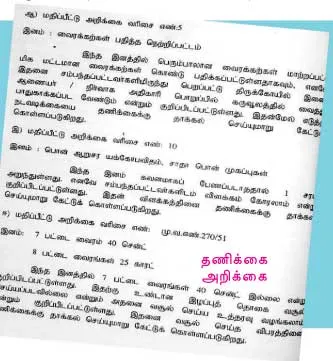 ஆ) மதிப்பீட்டு அறிக்கை வரிசை எண்:5
இனம் : வைரக்கற்கள் பதித்த நெற்றிப்பட்டம்
இந்த இனத்தில் பெரும்பாலான வைரக்கற்கள் மாற்றப்பட்
மிக மட்டமான வைரக்கற்கள் கொண்டு பதிக்கப்பட்டுள்ளதாகவும், எனவே
இதனை சம்பந்தப்பட்டவர்களிமிருந்து பெறப்பட்டு திருக்கோயில் இணை
ஆணையர் / நிர்வாக அதிகாரி பொறுப்பில் கருவூலத்தில் வைத்து
பாதுகாக்கப்பட வேண்டும் என்றும் குறிப்பிடப்பட்டுள்ளது. இதன்மேல் எடுக்
நடவடிக்கையை தணிக்கைக்கு தாக்கல் செய்யுமாறு கேட்டுக்
கொள்ளப்படுகிறது.
இ) மதிப்பீட்டு அறிக்கை வரிசை எண்: 10
இனம் : பொன் ஆறுசர யக்கோபவிதம், சாதா பொன் முகப்புகள்
இந்த இனம் கவனமாகப் பேணப்படாததால் 1 சரம்
அறுந்துள்ளது. எனவே சம்பந்தப்பட்டவர்களிடம் விளக்கம் கோரலாம் என்று
குறிப்பிடப்பட்டுள்ளது. இதன் விளக்கத்தினை தணிக்கைக்கு தாக்கல்
செய்யுமாறு கேட்டுக் கொள்ளப்படுகிறது.
ஈ) மதிப்பீட்டு அறிக்கை வரிசை எண்: மு.வ.எண்.270/51
இனம்: 7 பட்டை வைரம் 40 சென்ட்
8 பட்டை வைரங்கள் 25 காரட்
தணிக்கை
அறிக்கை
இந்த இனத்தில் 7 பட்டை வைரங்கள் 40 சென்ட் இல்லை என்று
குறிப்பிடப்பட்டுள்ளது. இதற்கு உண்டான இழப்புத் தொகை வசூல்
செய்யப்படவில்லை என்றும் அதனை வசூல் செய்ய உத்தரவு வழங்கலாம்
என்றும் குறிப்பிடப்பட்டுள்ளது. இதனை வசூல் செய்த விபரத்தினை
தணிக்கைக்கு தாக்கல் செய்யுமாறு கேட்டுக் கொள்ளப்படுகிறது.